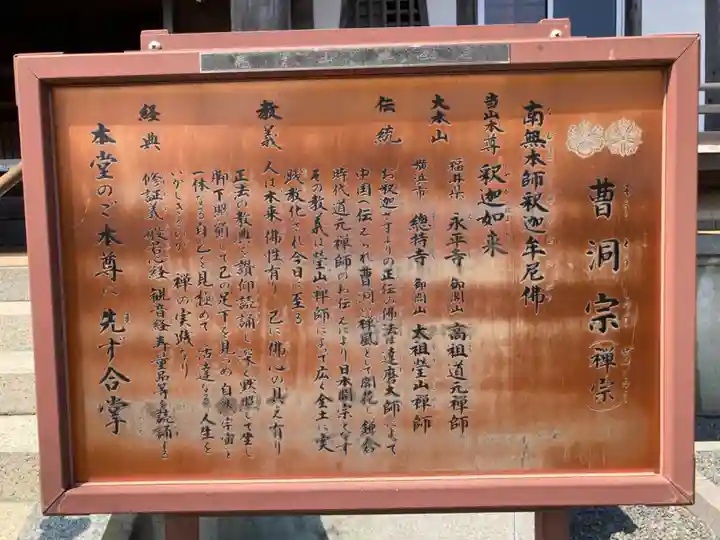 曹洞宗(禅宗)
南無本師釈迦牟尼佛
当山本尊 釈迦如来
大本山 福井県 永平寺 御開山 高祖道元禅師
横浜市 總持寺 御開山 太祖瑩山禅師
伝統 お釈迦さまよりの正伝の佛法は達磨大師によって
中国へ伝えられ曹洞の禅風として開花し鎌倉
時代道元禅師のお伝えにより日本開宗となす
その教義は瑩山禅師によって広く全土に実
践教化され今日に至る
教義 人は本来佛性有り 己に佛心の具え有り
正法の教典を讃仰読誦し深く黙照して坐し
脚下照顧して己の足下を見つめ自然宇宙と
一体なる自己を見極めて 活達なる人生を
禅の実践なり
経典 修証義 般若心経 観音経 寿量品等を読誦する
本堂のご本尊に先ず合掌